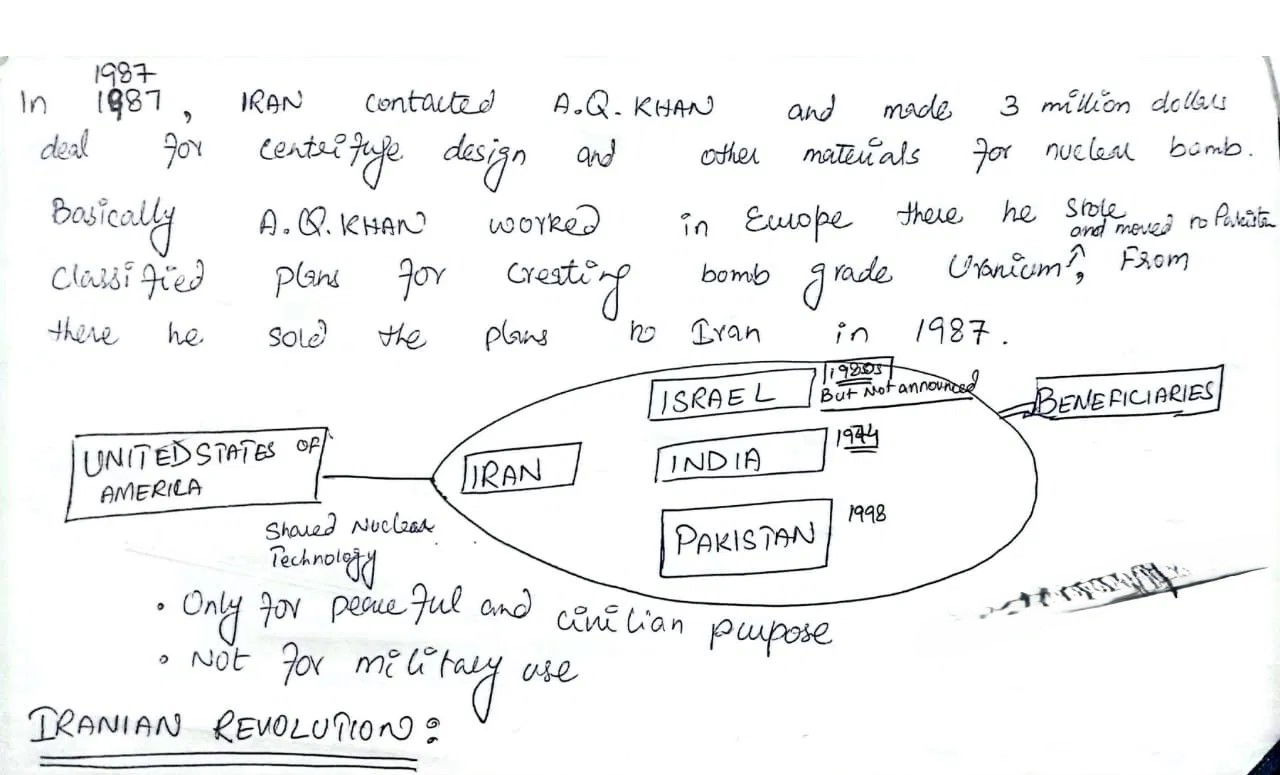 1987
In 1987, IRAN contacted A.Q. KHAN and made 3 million dollars
deal for centrifuge design and other materials for nuclear bomb.
Basically A.Q. KHAN worked in Europe there he stole
and moved to Pakistan
Classified plans for creating bomb grade Uranium, From
there he sold the plans to Iran in 1987.
ISRAEL
1980s
But Not announced
BENEFICIARIES
UNITED STATES OF
AMERICA
IRAN
INDIA
1974
PAKISTAN
1998
Shared Nuclear
Technology
• Only for peaceful and civilian purpose
• Not for military use
IRANIAN REVOLUTION: